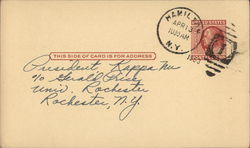 HAMIL
APR 13
10 30 AM
N.Y.
THIS SIDE OF CARD IS FOR ADDRESS
President, Kappa Nu
℅ Gerald Price
Univ. Rochester
Rochester, N.Y.